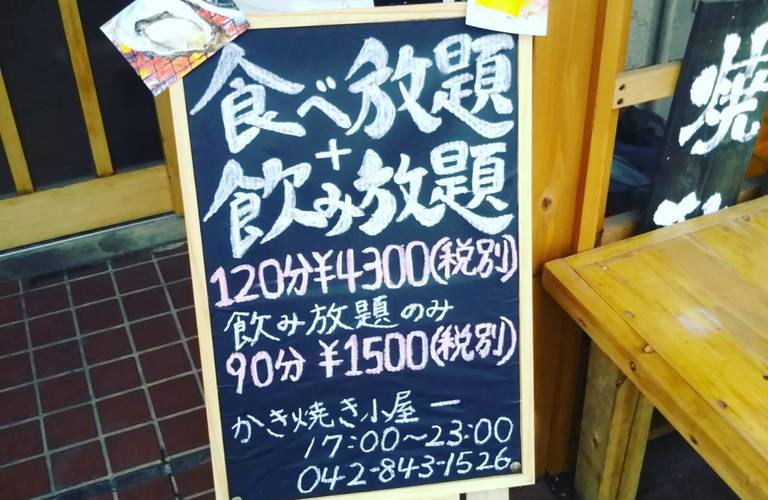 食べ放題
+
飲み放題
120分¥4300(税別)
飲み放題のみ
90分 ¥1500(税別)
かき焼き小屋 一
17:00～23:00
042-843-1526
焼